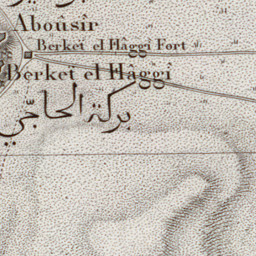 Aboûsir
Berket el Hâggi Fort
Berket el Hâggi
بركة الحاجّي